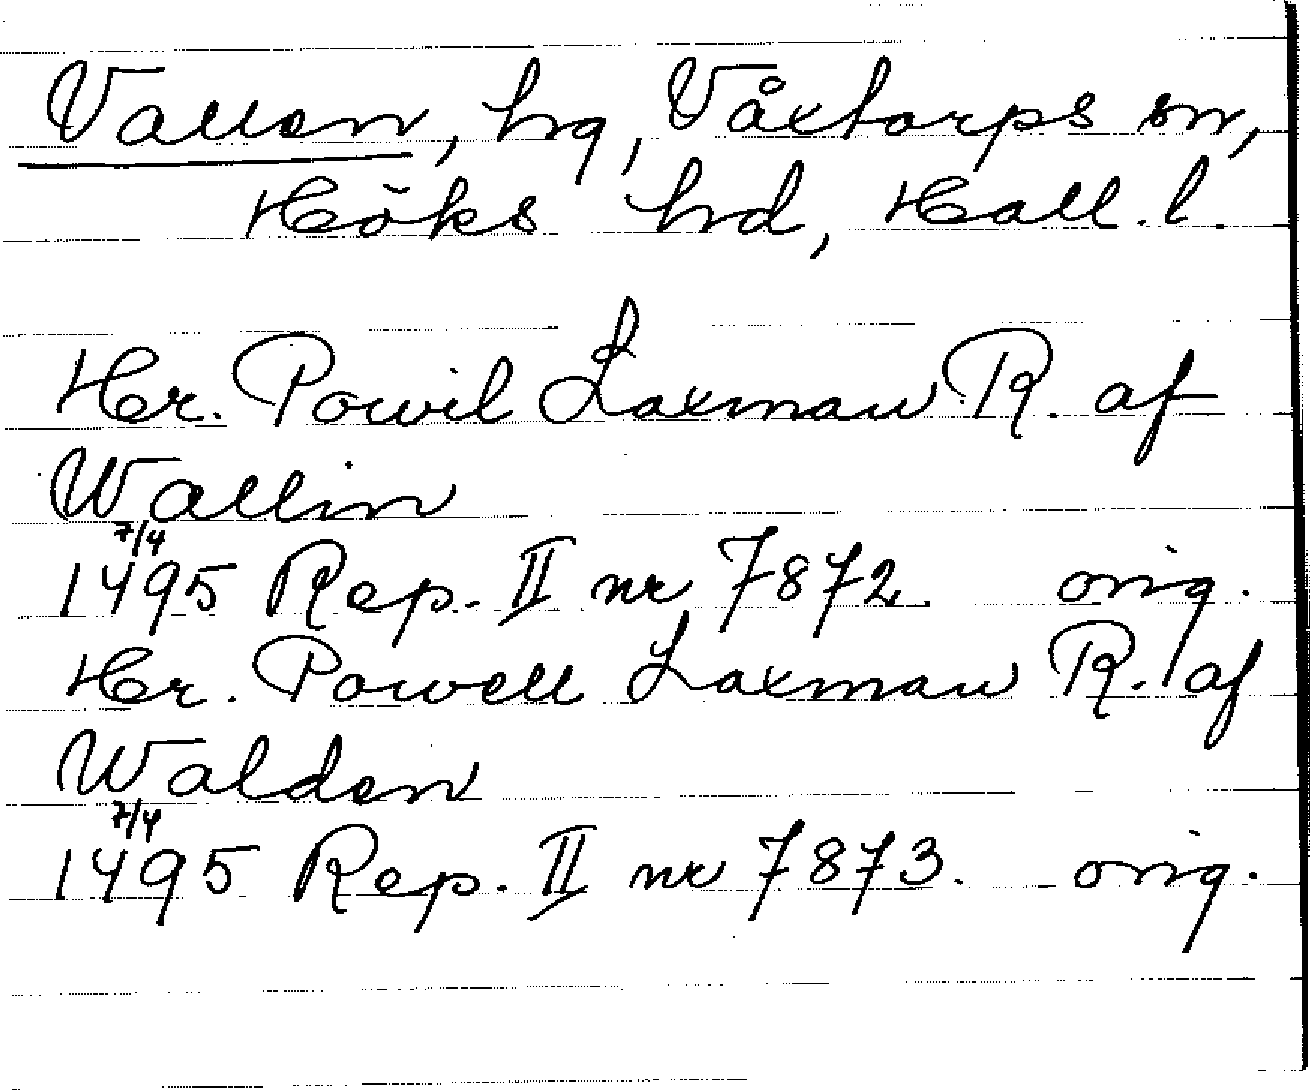 Vallen, hg, Våxtorps sn,
Höks hd, Hall. l.
Her. Powil Laxman R. af
Wallin
7/4
1495 Rep. II nr 7872. orig.
Her. Powell Laxman R. af
Walden
7/4
1495 Rep. II nr 7873. orig.